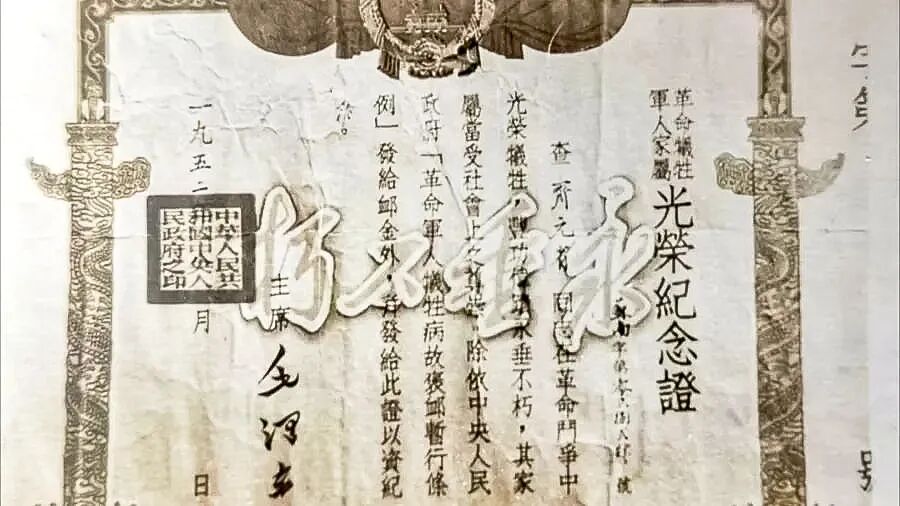 革命犧牲
軍人家屬
光榮紀念證
字第 號
查 元 同志在革命鬥爭中
光榮犧牲，豐功偉績永垂不朽，其家
屬當受社會上之尊敬。除依中央人民
政府「革命軍人犧牲病故褒卹暫行條
例」發給卹金外，並發給此證以資紀
念。
主席 毛澤东
一九五二 月 日
中華人民共
和國中央人
民政府之印